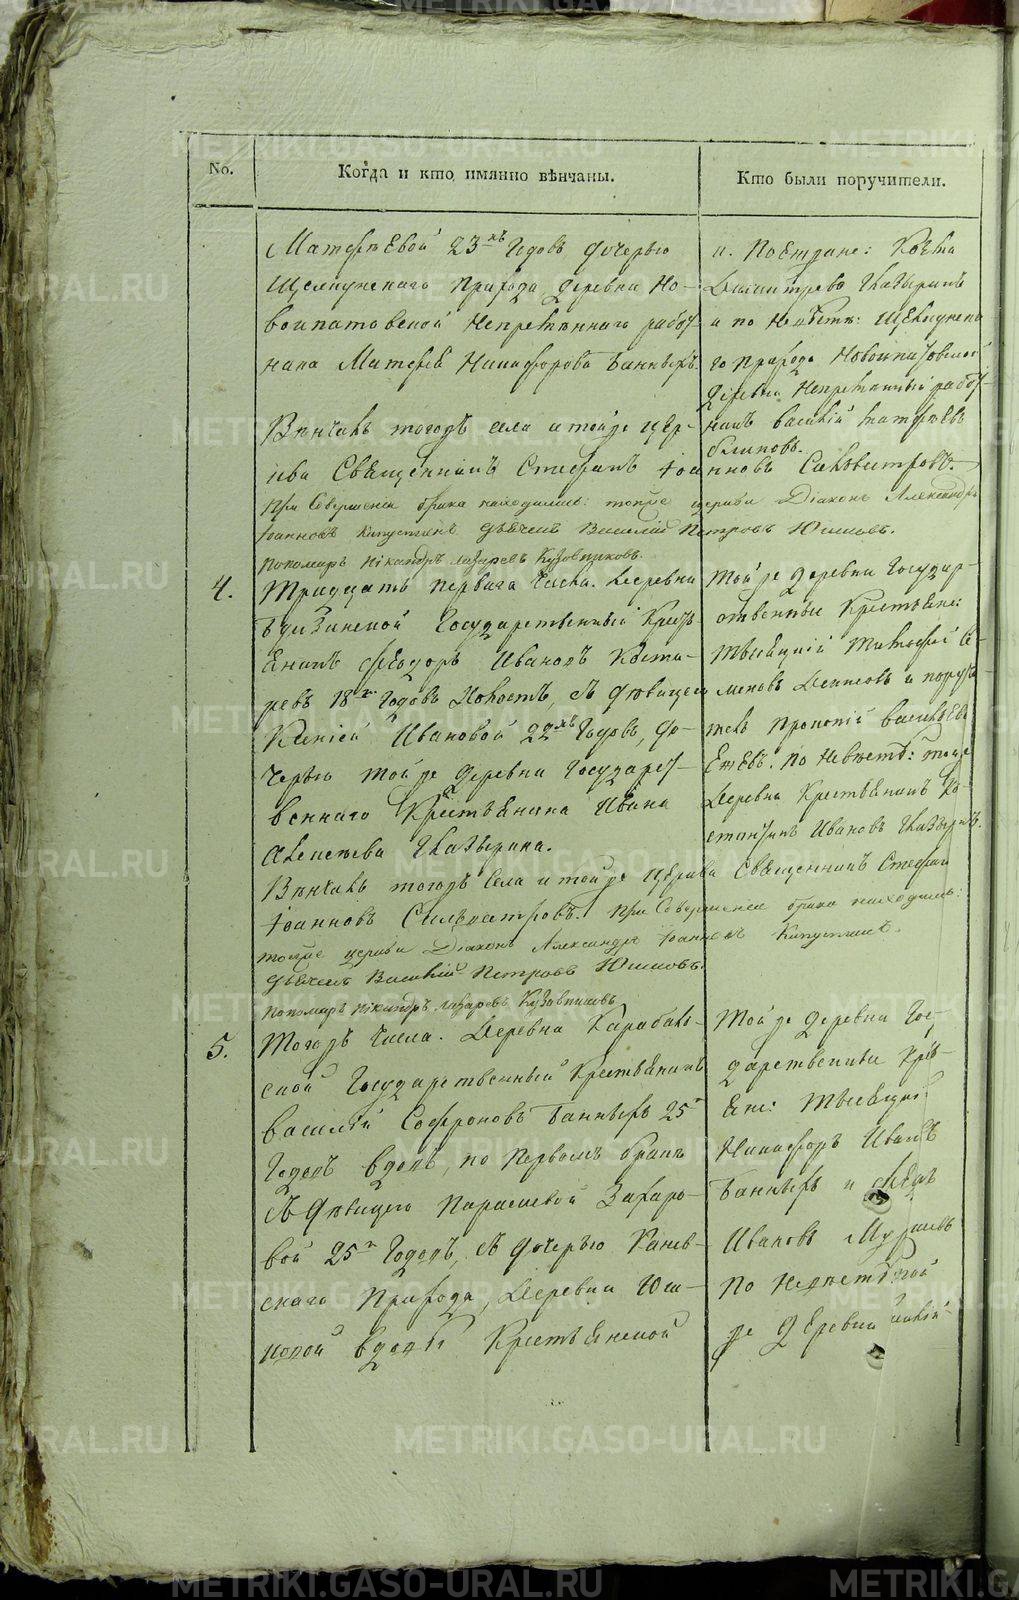 No.
Когда и кто имянно вѣнчаны.
Кто были поручители.
Матвѣевой 23хъ Годовъ дочерью
Щелкунскаго Прихода деревни Но-
воипатовской Непремѣннаго работ-
ника Матвѣя Никифорова Банныхъ.
Вѣнчалъ тогожъ села и тойже цер-
кви Священникъ Стефанъ Іоанновъ Сильвестровъ.
При Совершеніи брака находились: тойже церкви Діаконъ Александръ
Іоанновъ Капустинъ Дьячекъ Василій Петровъ Юшковъ.
Пономарь Никандръ Лазаревъ Кузовниковъ.
п. Поѣтране:
Дмитріево
и по Невѣсте: Щелкунска-
го Прихода Новоипатовской
деревни Непремѣнный работ-
никъ Василій Матвѣевъ
Блиновъ.
4.
Тридцать перваго Числа. Деревни
Государственный Кресть-
янинъ Ѳеодоръ Ивановъ Коста-
ревъ 18 Годовъ Холостъ, съ Дѣвицею
Ксеніей Ивановой 22хъ Годовъ, до-
черью той же деревни Государст-
веннаго Крестьянина Ивана
Алексѣева
Вѣнчалъ тогожъ Села и тойже Церкви Священникъ Стефанъ
Іоанновъ Сильвестровъ. При Совершеніи брака находились:
тойже церкви Діаконъ Александръ Іоанновъ Капустинъ.
Дьячекъ Василій Петровъ Юшковъ.
Пономарь Никандръ Лазаревъ Кузовниковъ
Той же деревни Государ-
ственные Крестьяне:
Тысяцкій Тимофей Се-
меновъ Денисовъ и поручи-
тель Прокопій Васильевъ
по Невѣсте: тойже
Деревни Крестьянинъ Ко-
стантинъ Ивановъ
5.
Тогожъ Числа. Деревни Карабаль-
ской Государственный Крестьянинъ
Василій Софроновъ Банныхъ 25
Годовъ вдовъ, по Первомъ бракѣ
съ Дѣвицею Парасковой Захаро-
вой 25 Годовъ, съ дочерью
скаго Прихода, Деревни Юш-
ковой вдовы Крестьянской
Той же деревни Госу-
дарственные Кресть-
яне: Тысяцкій
Никифоръ Ивановъ
Банныхъ и
Ивановъ
По Невѣсте той
же деревни